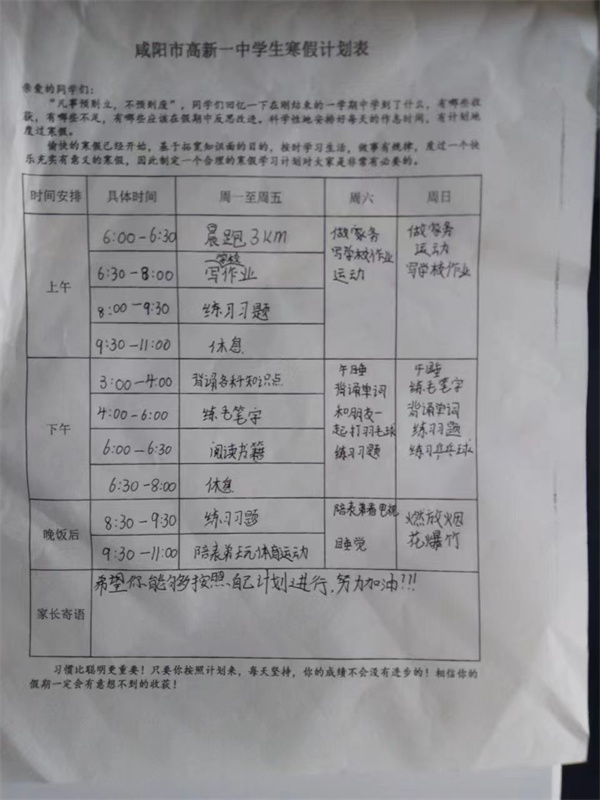 咸阳市高新一中学生寒假计划表
亲爱的同学们：
“凡事预则立，不预则废”，同学们回忆一下在刚结束的一学期中学到了什么，有哪些收
获，有哪些不足，有哪些应该在假期中反思改进。科学性地安排好每天的作息时间，有计划地
度过寒假。
愉快的寒假已经开始，基于拓宽知识面的目的，按时学习生活，做事有规律，度过一个快
乐充实有意义的寒假，因此制定一个合理的寒假学习计划对大家是非常有必要的。
时间安排 具体时间 周一至周五 周六 周日
上午
6:00-6:30 晨跑3KM
6:30-8:00 写学校作业
8:00-9:30 练习习题
9:30-11:00 休息
做家务
写学校作业
运动
做家务
运动
写学校作业
下午
3:00-4:00 背诵各科知识点
4:00-6:00 练毛笔字
6:00-6:30 阅读书籍
6:30-8:00 休息
午睡
背诵单词
和朋友一
起打羽毛球
练习习题
午睡
练毛笔字
背诵单词
练习题
练习乒乓球
晚饭后
8:30-9:30 练习习题
9:30-11:00 陪表弟去玩体育运动
陪表弟看电视
睡觉
燃放烟
花爆竹
家长寄语
希望你能够按照自己计划进行，努力加油!!!
习惯比聪明更重要！只要你按照计划来，每天坚持，你的成绩不会没有进步的！相信你的
假期一定会有意想不到的收获！